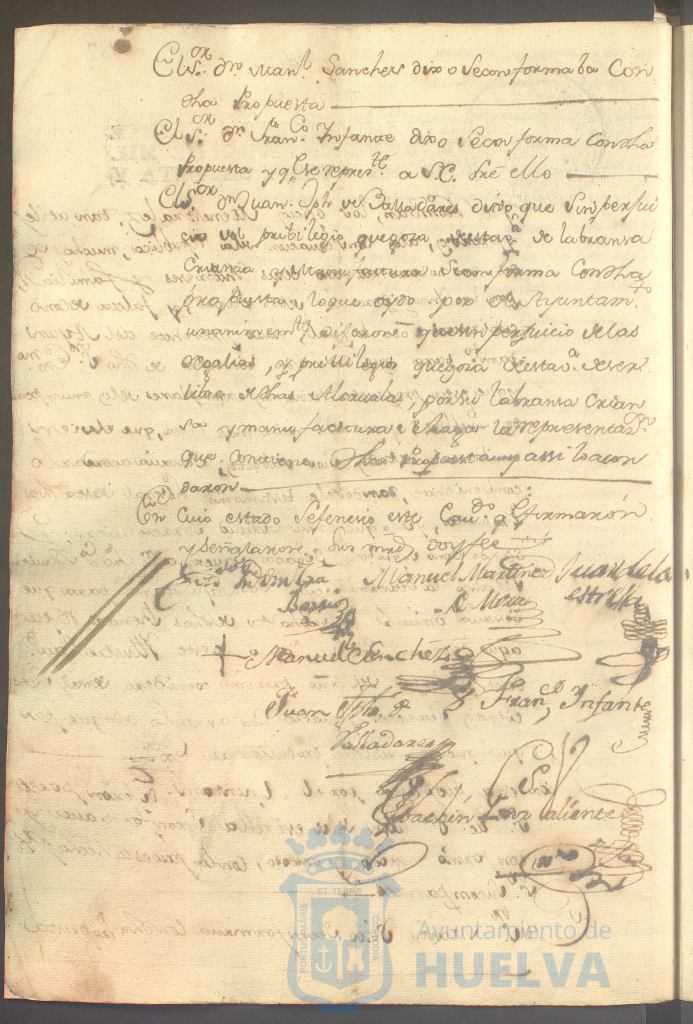 El Sor. dn. Manl. Sanches dixo Seconformaba Con
dha Propuesta
El Sor. dn. Franco. Infante dixo Seconforma Con dha
Propuesta y qe. Se represte. a S.C. sre ello
El Sor. dn Juan Jph de Balladares dixo que Sin perjui
cio del pribilegio que goza, de la branza
Crianza y manufactura Seconforma Con dha
propuesta lo que oydo por este Ayuntamto.
unanimemte. que sin perjuicio de las
regalias, y pribilegios que goza esta de ser
libre de dhas Alcavalas, por su labranza Crian
za y manufactura Se haga la representazon.
que Contiene dha propuesta y assi lo acor
daron
En Cuio estado Sefenecio este Cavdo. q firmaron
y Señalaron Sus mrds doy fee
Manuel Martinez Juan de la
estrella
Manuel Sanchez
Juan Jph de Franco Ynfante
Valladares
Joachin Valiente
PORTUS MARIS ET TERRÆ CUSTODIA
Ayuntamiento de
HUELVA